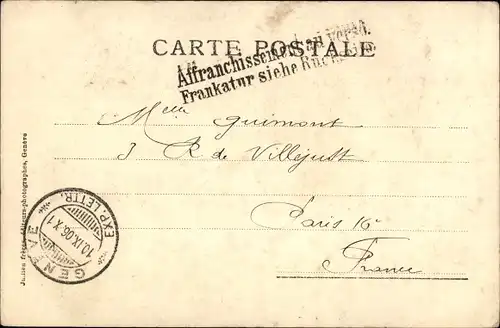 CARTE POSTALE
Affranchissement au verso.
Frankatur siehe Rückseite.
Melle Guimont
3 R de Villejust
Paris 16e
France
GENÈVE
10.IX.06.X1
EXP. LETTR.
Jullien frères, éditeurs-photographes, Genève